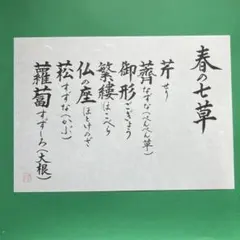 春の七草
芹 せり
薺 なずな(ぺんぺん草)
御形 ごぎょう
繁縷 はこべら
仏の座 ほとけのざ
菘 すずな(かぶ)
蘿蔔 すずしろ(大根)